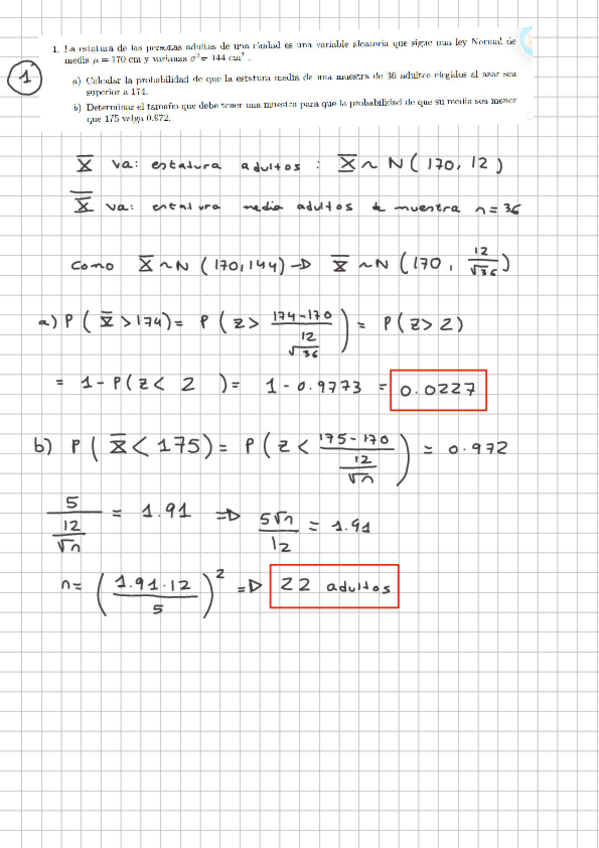 1. La estatura de las personas adultas de una ciudad es una variable aleatoria que sigue una ley Normal de
media μ = 170 cm y varianza σ² = 144 cm².
1
a) Calcular la probabilidad de que la estatura media de una muestra de 36 adultos elegidos al azar sea
superior a 174.
b) Determinar el tamaño que debe tener una muestra para que la probabilidad de que su media sea menor
que 175 valga 0.972.
X va: estatura adultos : X ~ N(170, 12)
X̄ va: estatura media adultos de muestra n=36
Como X ~ N (170, 144) → X̄ ~ N (170, 12/√36)
a) P( X̄ > 174) = P( Z > (174-170)/(12/√36) ) = P(Z > 2)
= 1 - P(Z < 2 ) = 1 - 0.9773 = 0.0227
b) P( X̄ < 175) = P( Z < (175-170)/(12/√n) ) = 0.972
5/(12/√n) = 1.91 ⇒ 5√n/12 = 1.91
n = (1.91·12/5)² ⇒ 22 adultos